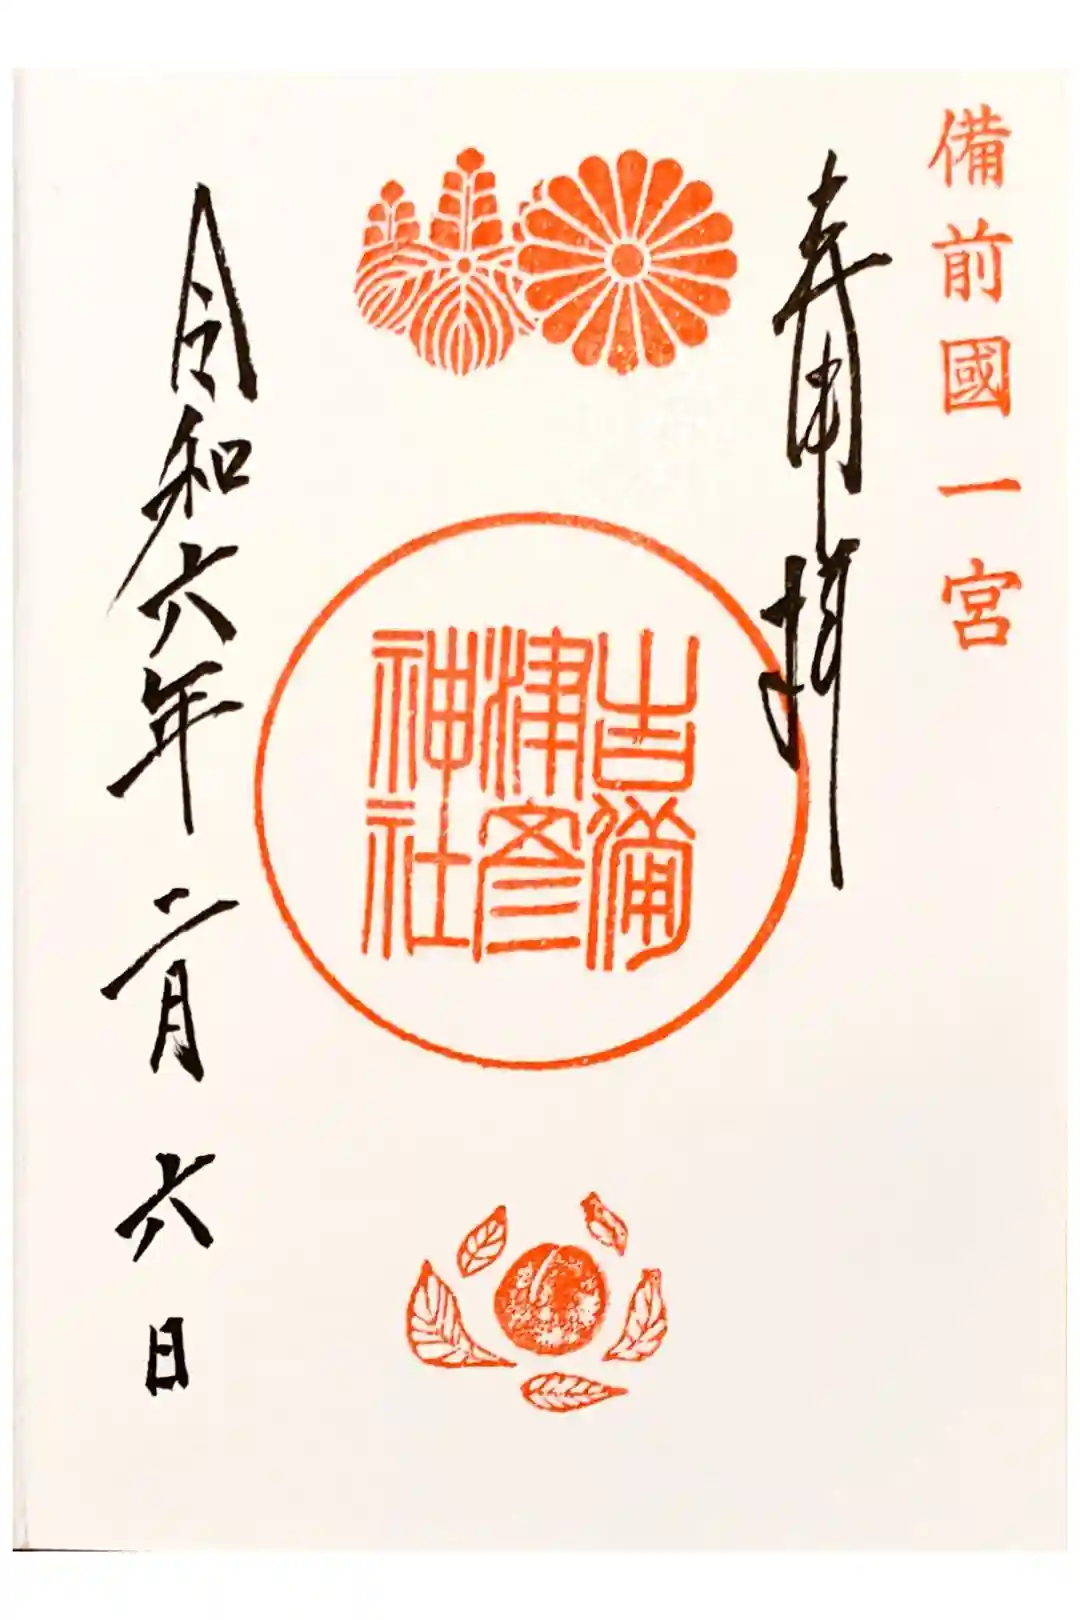 備前國一宮
奉拝
吉備
津彦
神社
令和六年二月六日